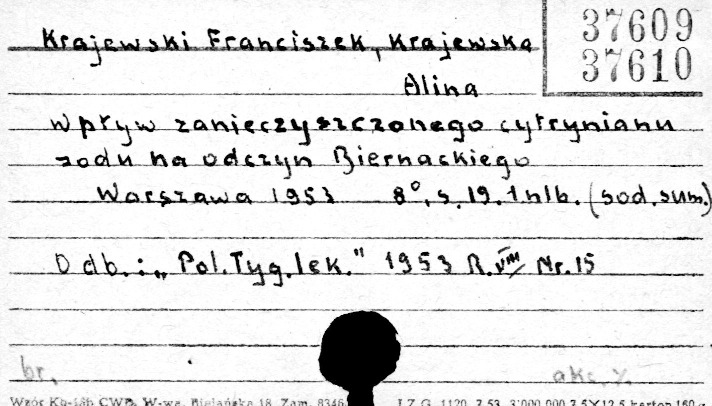 37609
37610
Krajewski Franciszek, Krajewska
Alina
Wpływ zanieczyszczonego cytrynianu
sodu na odczyn Biernackiego
Warszawa 1953 8°, s. 19. 1 nlb. (sod. sum.)
Odb.: „Pol. Tyg. lek." 1953 R. VIII Nr. 15
br. akc. %.
CWD, W-wa, Bielańska 18. Zam. 8346 I Z G. 1120. 7.53. 3'000.000 7,5×12,5 karton 160 g